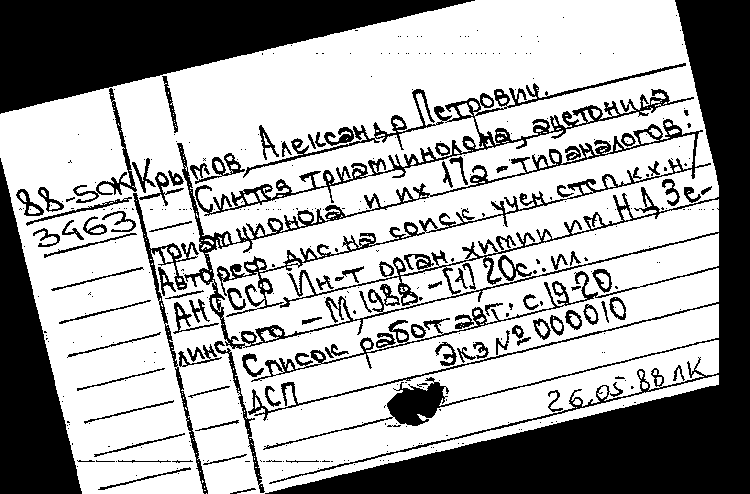 88-5ОК Крымов, Александр Петрович.
3463 Синтез триамцинолона, ацетонида
триамционола и их 17а-тиоаналогов:
Автореф. дис. на соиск. учен. степ. к.х.н./
АНСССР, Ин-т орган. химии им. Н.Д.Зе-
линского. - М. 1988. - [1] 20с.: ил.
Список работ авт.: с.19-20.
ДСП Экз № 000010
26.05.88 ЛК